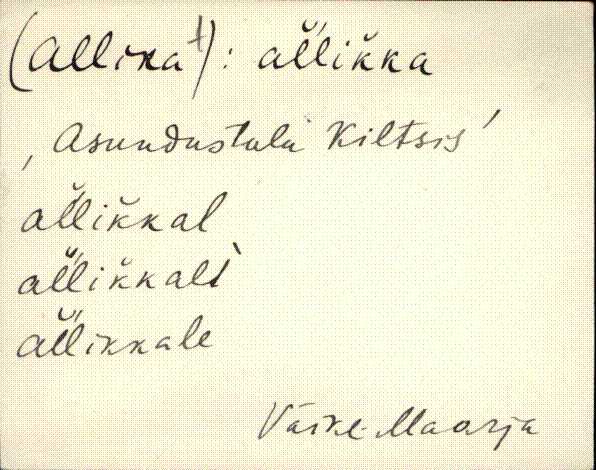 (Allika†): al̆l̆ik̆ka
‚Asundustalu Kiltsis’
al̆l̆ik̆kal
al̆l̆ik̆kalt̀
al̆l̆ikkale
Väike-Maarja